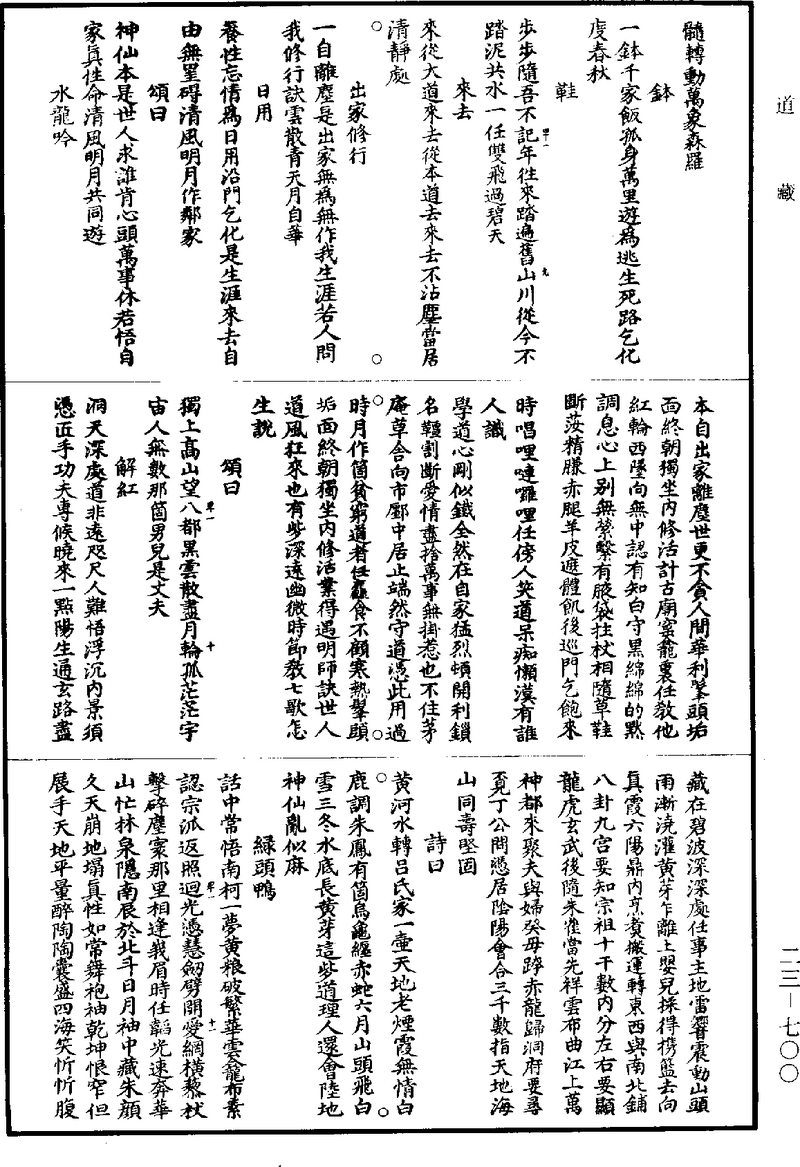 道藏
髓轉動萬象森羅
鉢
一鉢千家飯孤身萬里遊為逃生死路乞化
度春秋
鞋
步步隨吾不記年往來踏遍舊山川從今不
踏泥共水一任雙飛過碧天
來去
來從大道來去從本道去來去不沾塵當居
清靜處
出家修行
一自離塵是出家無為無作我生涯若人問
我修行訣雲散青天月自華
日用
養性忘情為日用沿門乞化是生涯來去自
由無罣礙清風明月作鄰家
頌曰
神仙本是世人求誰肯心頭萬事休若悟自
家真性命清風明月共同遊
水龍吟
本自出家離塵世更不貪人間華利鬔頭垢
面終朝獨坐內修活計古廟窰龕裏任教他
紅輪西墜向無中認有知白守黑綿綿的黙
調息心上別無縈繫有腋袋拄杖相隨草鞋
斷茭精臁赤腿羊皮遮體飢後巡門乞飽來
時唱哩嗹囉哩任傍人笑道呆痴懶漢有誰
人識
學道心剛似鐵全然在自家猛烈頓開利鎖
名韁割斷愛情盡捨萬事無掛惹也不住茅
庵草舍向市鄽中居止端然守道憑此用過
時月作箇貧窮道者任麤食不顧寒熱鬔頭
垢面終朝獨坐內修活業得遇明師訣世人
道風狂來也有些深遠幽微時節教七歌怎
生說
頌曰
獨上高山望八都黑雲散盡月輪孤茫茫宇
宙人無數那箇男兒是丈夫
解紅
洞天深處道非遠咫尺人難悟浮沉內景須
憑匠手功夫專候曉來一點陽生通玄路盡
藏在碧波深深處任事主地雷響震動山頭
雨漸澆灌黃芽乍離土嬰兒採得携籃去向
真霞六陽鼎內烹煑搬運轉東西與南北鋪
八卦九宮要知宗祖十干數內分左右要顯
龍虎玄武後隨朱雀當先祥雲布曲江上萬
神都來聚夫與婦癸母跨赤龍歸洞府要尋
覓丁公問憑居陰陽會合三千數指天地海
山同壽堅固
詩曰
黃河水轉呂氏家一壷天地老煙霞無情白
鹿調朱鳳有箇烏龜纏赤蛇六月山頭飛白
雪三冬水底長黃芽這些道理人還會陸地
神仙亂似麻
綠頭鴨
話中常悟南柯一夢黃粮破繁華雲籠布素
認宗派返照迴光憑慧劒劈開愛網橫藜杖
擊碎塵寰那里相逢我眉時任韜光速奔華
山忙林泉隱南辰於北斗日月袖中藏朱顏
久天崩地塌真性如常舞袍袖乾坤恨窄但
展手天地平量醉陶陶囊盛四海笑忻忻腹
二三—七〇〇